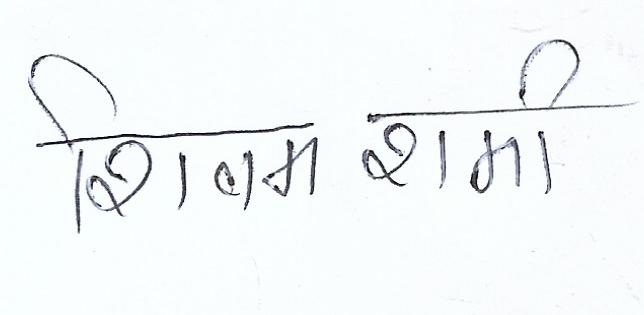 शिवम शर्मा